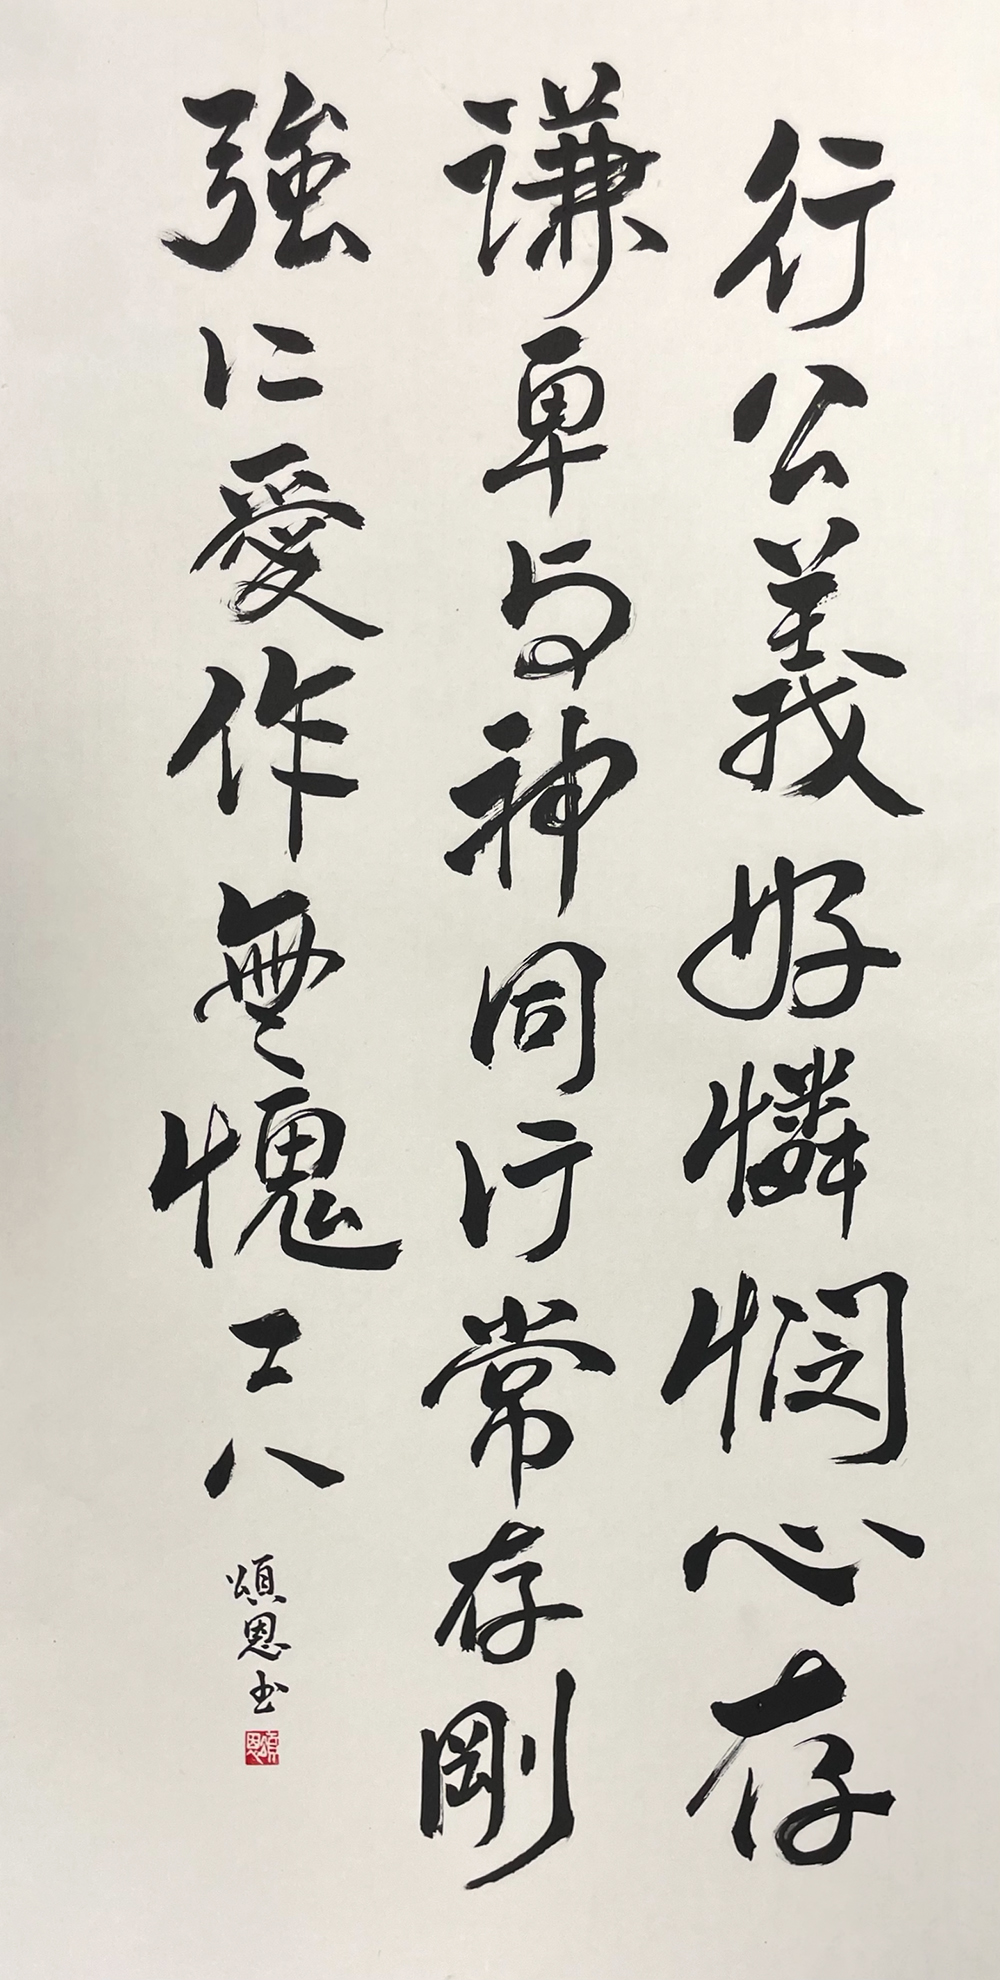 行公義好憐憫心存
謙卑与神同行常存剛
強仁愛作無愧工人
頌恩书
頌恩